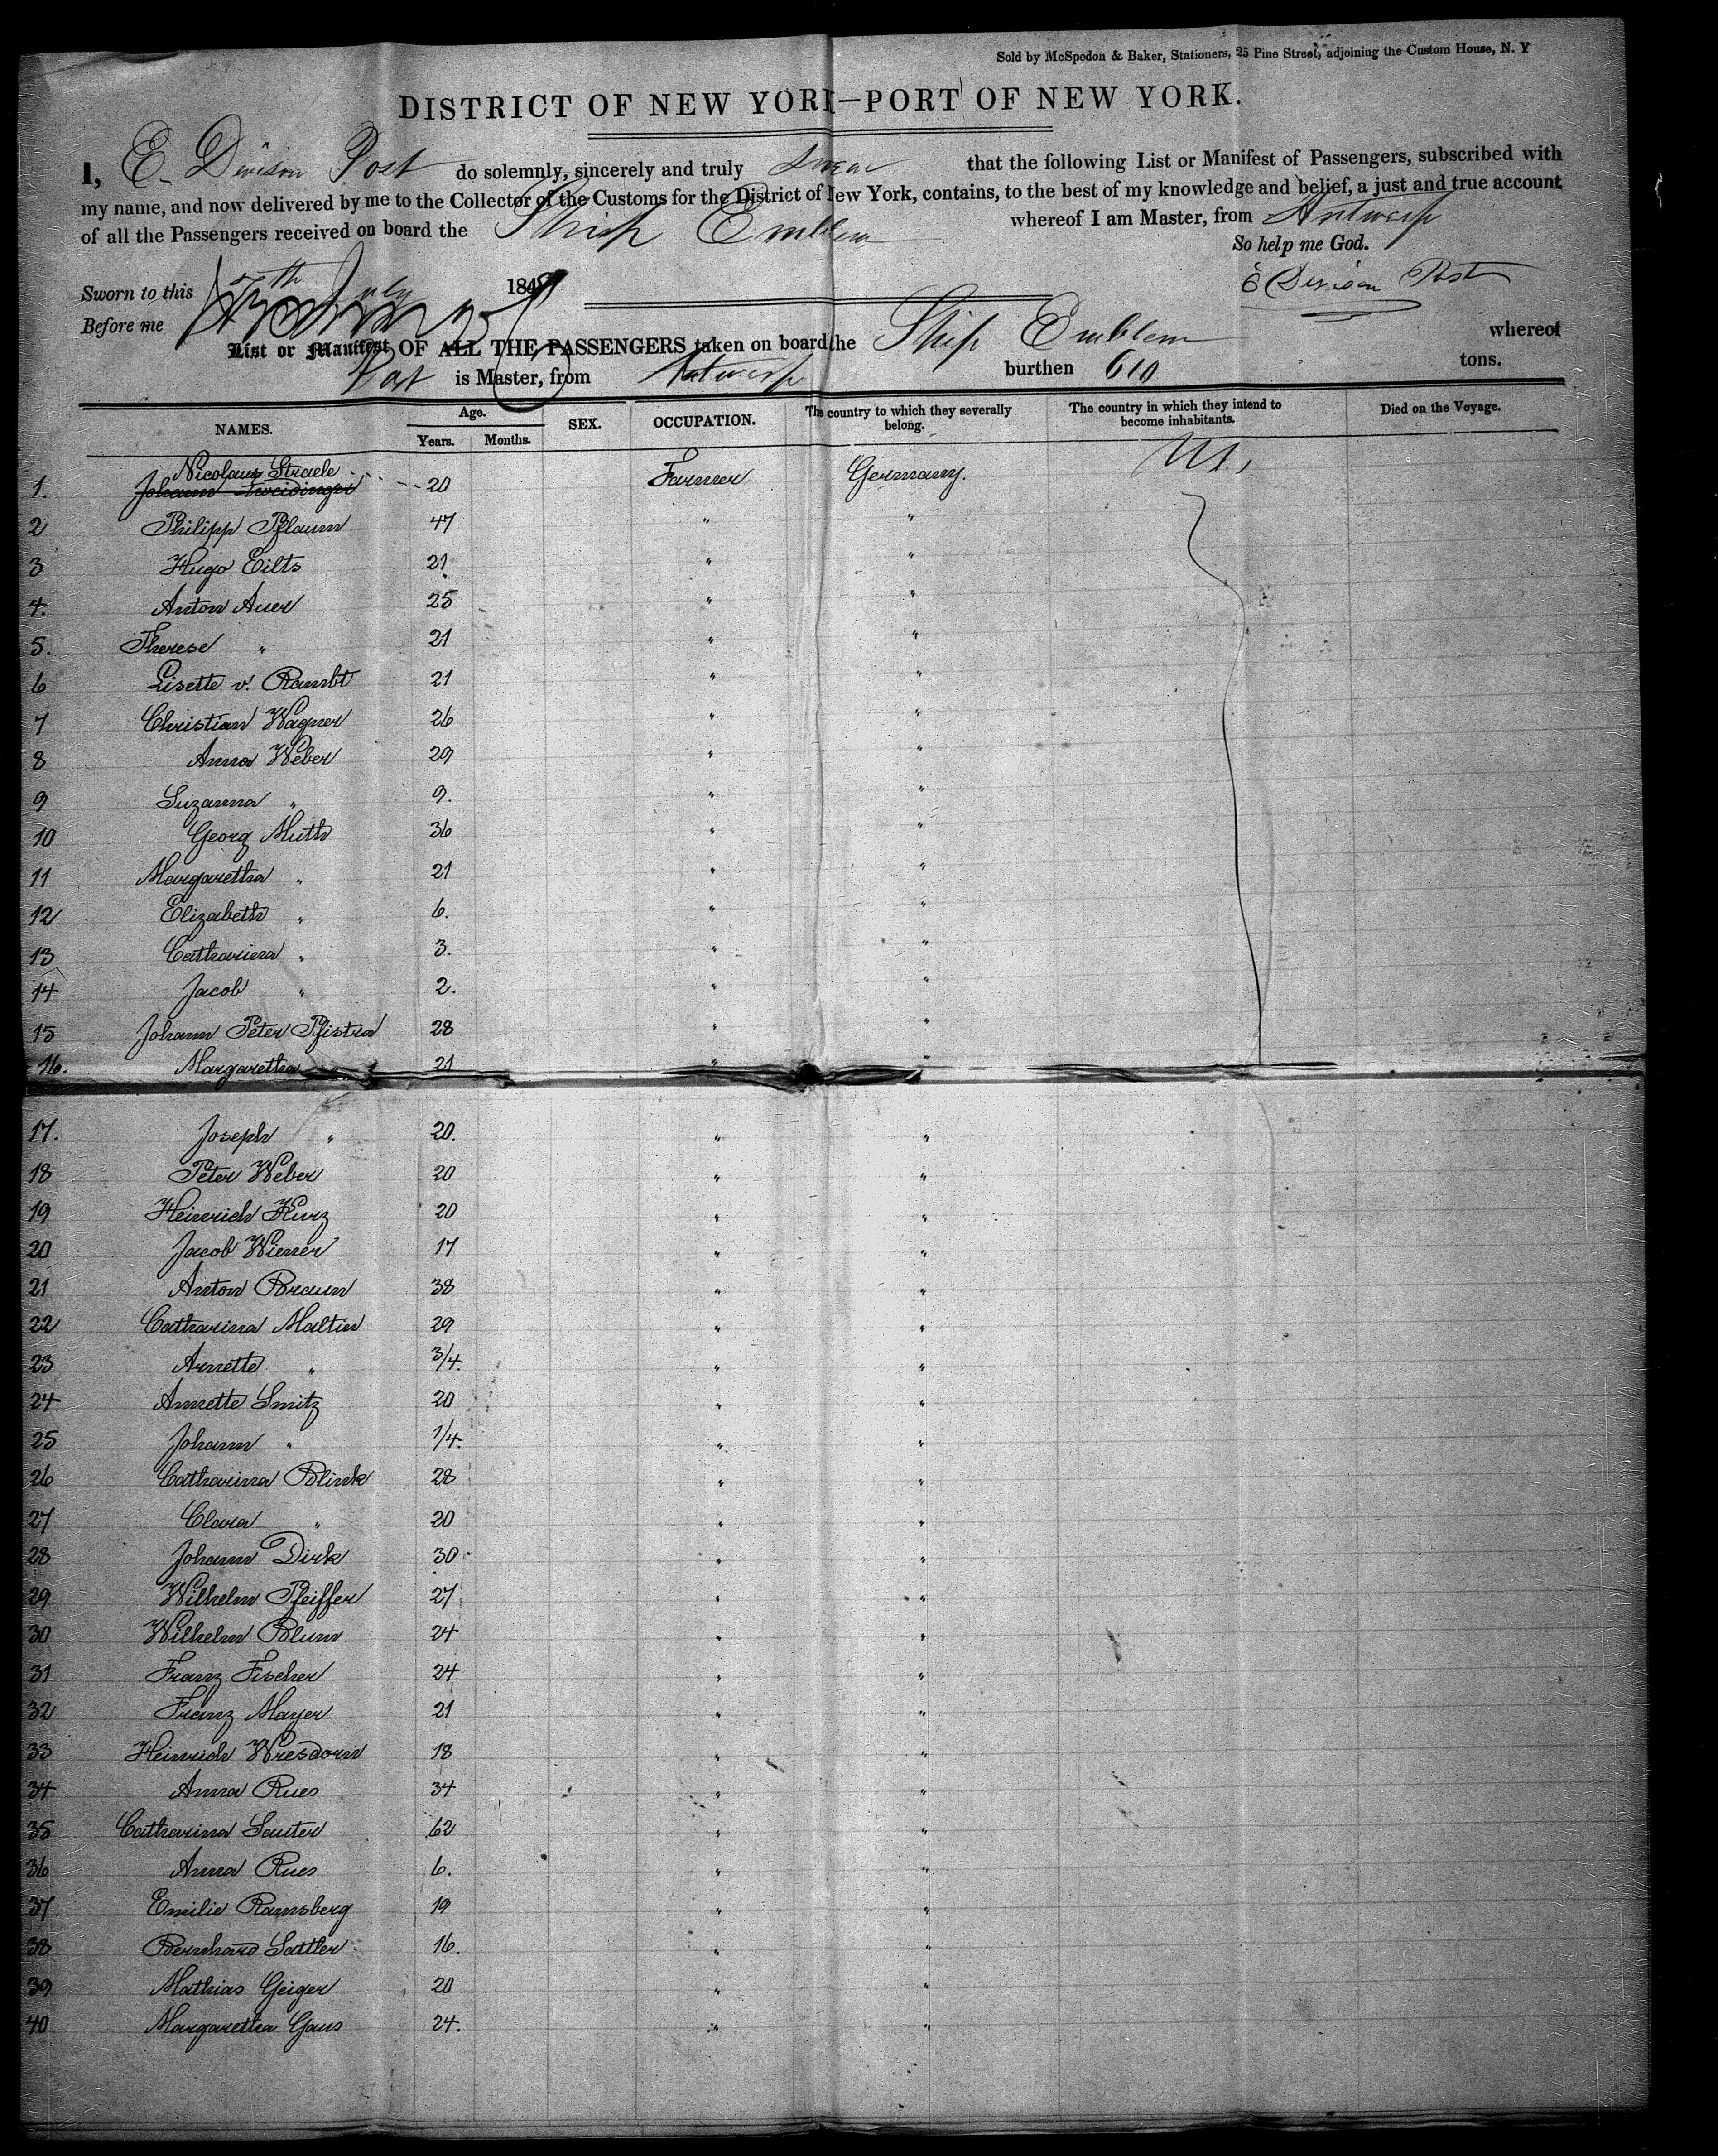 Sold by McSpedon & Baker, Stationers, 25 Pine Street, adjoining the Custom House, N. Y
DISTRICT OF NEW YORK—PORT OF NEW YORK.
I, E. Denison Post do solemnly, sincerely and truly swear that the following List or Manifest of Passengers, subscribed with
my name, and now delivered by me to the Collector of the Customs for the District of New York, contains, to the best of my knowledge and belief, a just and true account
of all the Passengers received on board the Ship Emblem whereof I am Master, from Antwerp
So help me God.
Sworn to this 7th July 1849
E Denison Post
Before me
List or Manifest OF ALL THE PASSENGERS taken on board the Ship Emblem whereof
Post is Master, from Antwerp burthen 610 tons.
NAMES. Age. Years. Months. SEX. OCCUPATION. The country to which they severally belong. The country in which they intend to become inhabitants. Died on the Voyage.
Nicolaus Straele
1. Johann 20 Farmer. Germany. US,
2 Philipp Pflaum 47 " "
3 Hugo Eilts 21 " "
4. Anton Auer 25 " "
5. Therese " 21 " "
6 Lisette v. Rambt 21 " "
7 Christian Wagner 26 " "
8 Anna Weber 29 " "
9 Suzanna " 9. " "
10 Georg Muth 36 " "
11 Margaretha " 21 " "
12 Elizabeth " 6. " "
13 Catharina " 3. " "
14 Jacob " 2. " "
15 Johann Peter Pfistra 28 " "
16. Margaretha 21 " "
17. Joseph " 20. " "
18 Peter Weber 20 " "
19 Heinrich Kurz 20 " "
20 Jacob Wiener 17 " "
21 Anton Braun 38 " "
22 Catharina Maltin 29 " "
23 Annette " 3/4. " "
24 Annette Smitz 20 " "
25 Johann " 1/4. " "
26 Catharina Blink 28 " "
27 Clara " 20 " "
28 Johann Dirk 30 " "
29 Wilhelm Pfeiffer 27 " "
30 Wilhelm Blum 24 " "
31 Franz Fischer 24 " "
32 Franz Mayer 21 " "
33 Heinrich Wresdorn 18 " "
34 Anna Rues 34 " "
35 Catharina Sauter 62 " "
36 Anna Rues 6. " "
37 Emilie Ramsberg 19 " "
38 Bernhard Sattler 16. " "
39 Mathias Geiger 20 " "
40 Margaretha Gaus 24. " "